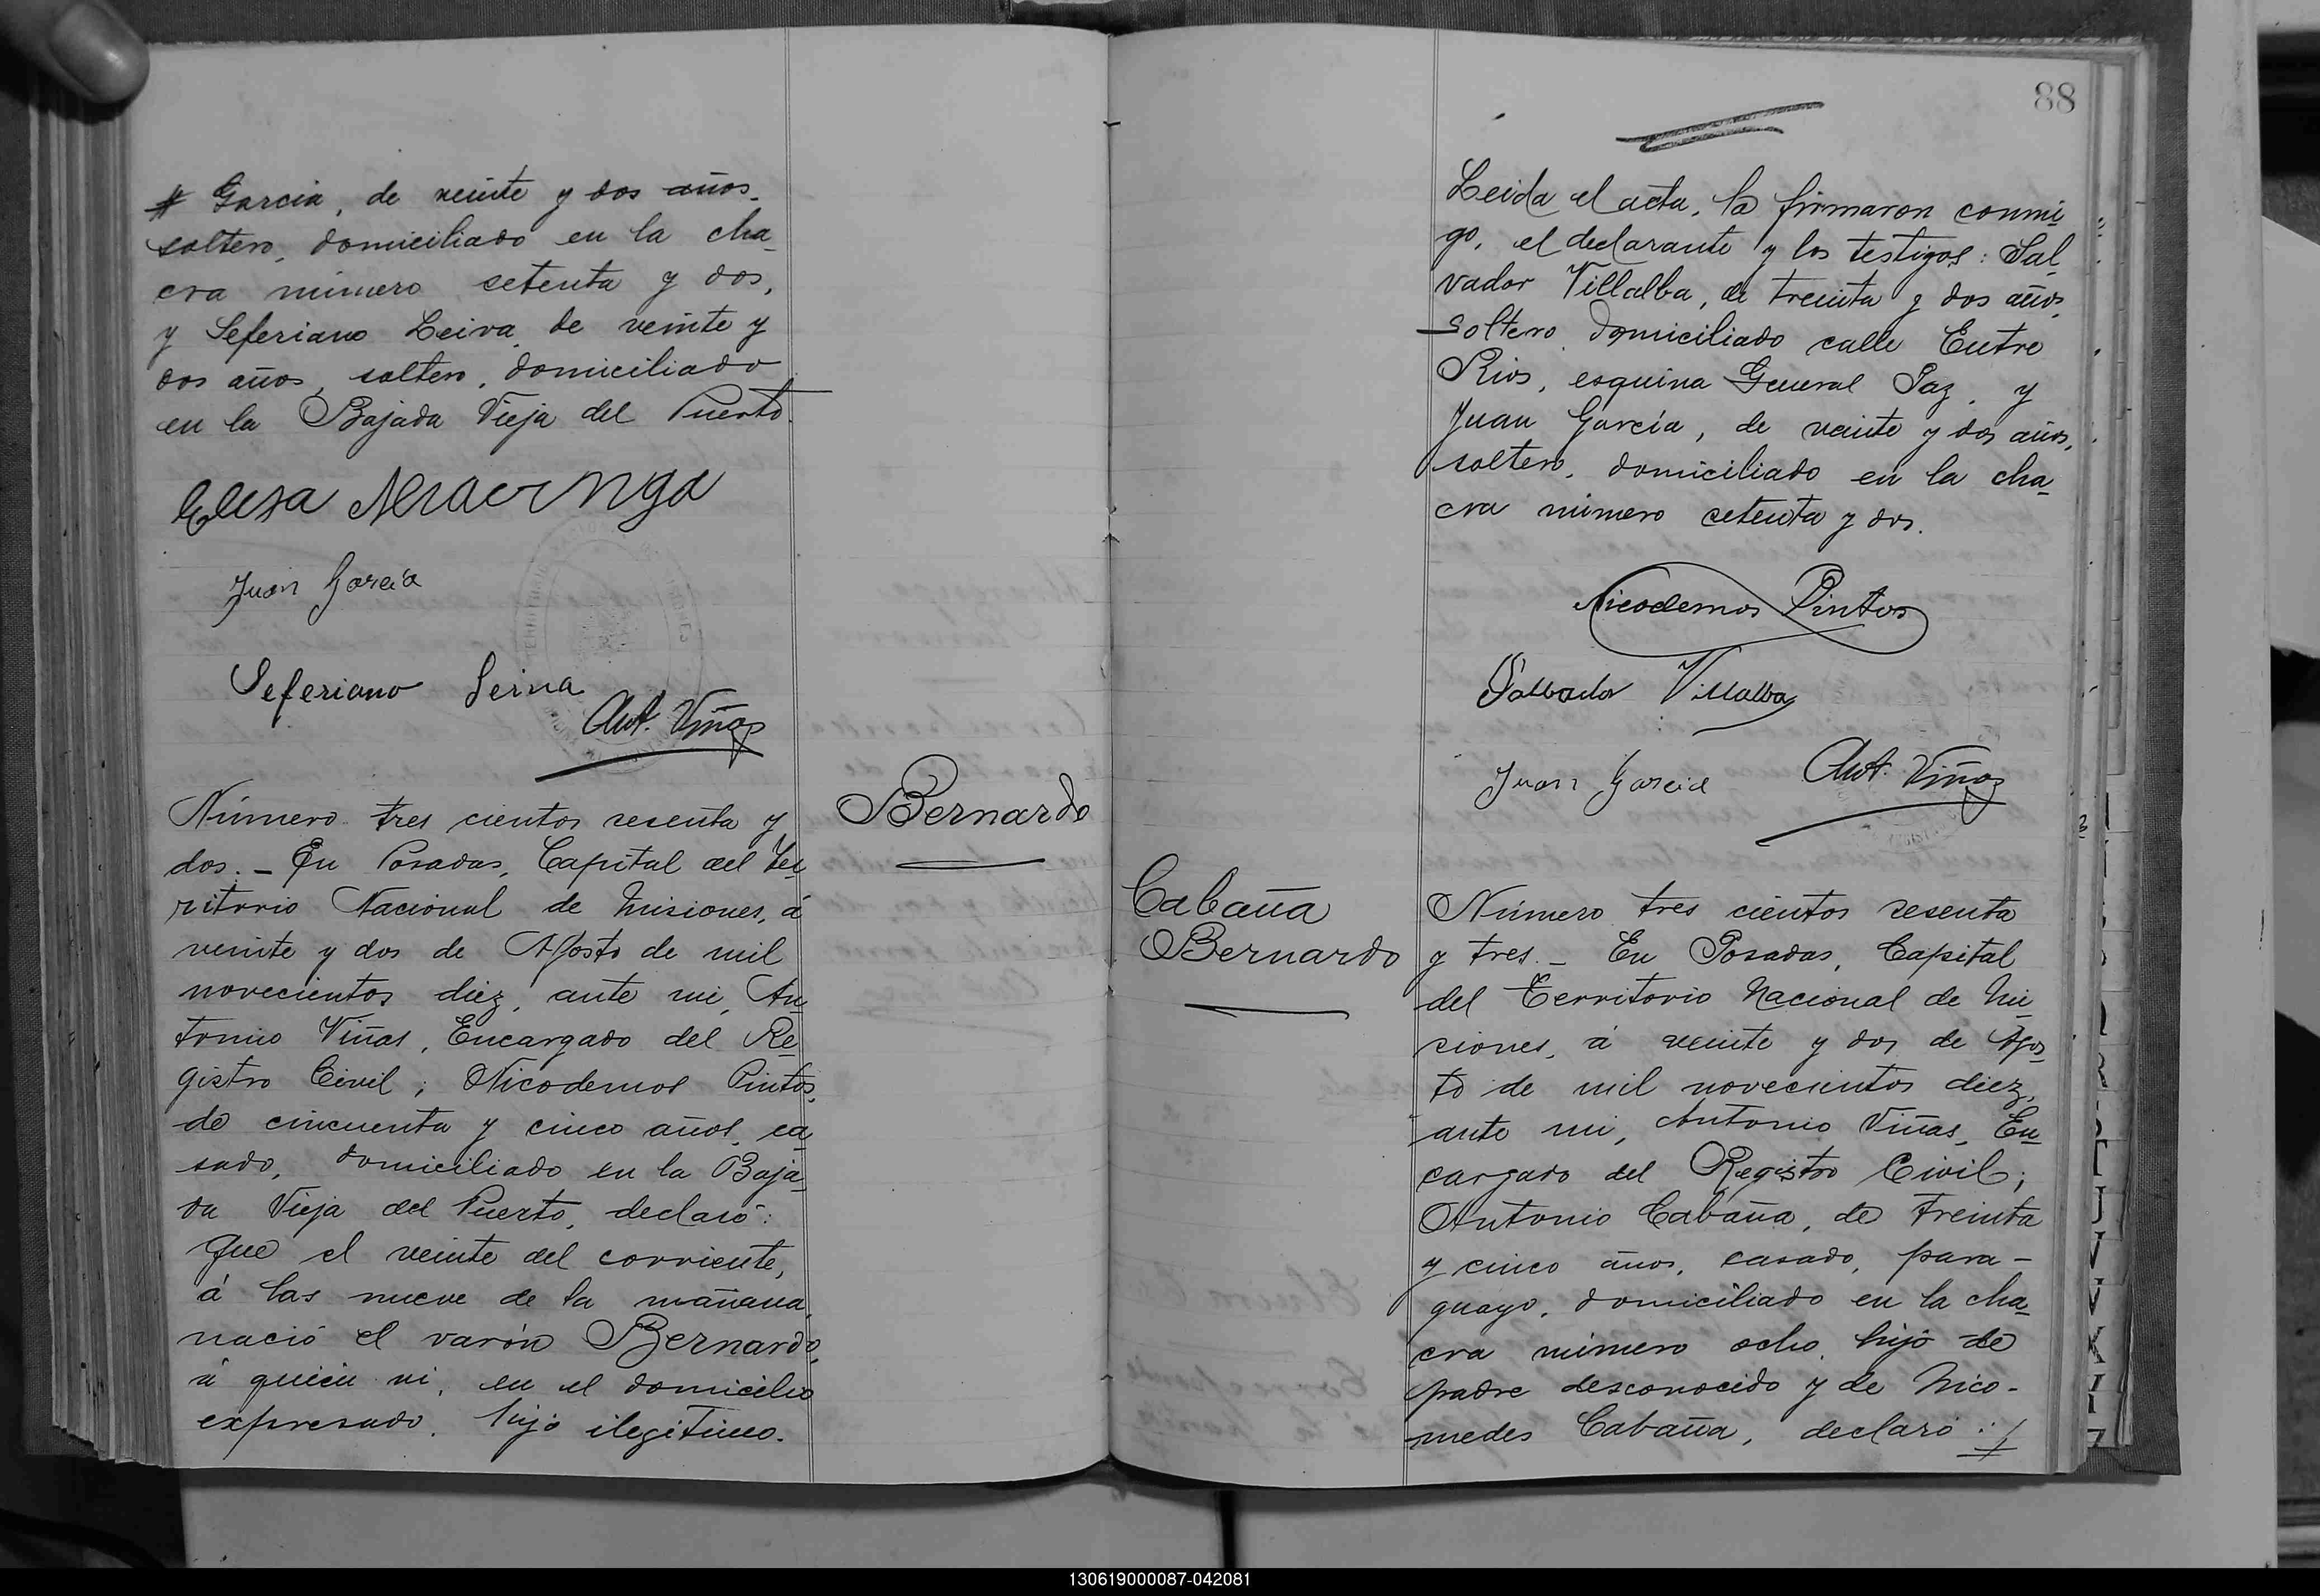 # Garcia, de veinte y dos años.
soltero, domiciliado en la cha-
cra número setenta y dos,
y Seferiano Leiva, de veinte y
dos años, soltero, domiciliado
en la Bajada Vieja del Puerto.
Elisa
Juan Garcia
Seferiano Leiva
Ant. Viñas
Bernardo
Número tres cientos sesenta y
dos. - En Posadas, Capital del Te-
ritorio Nacional de Misiones, á
veinte y dos de Agosto de mil
novecientos diez, ante mi, An-
tonio Viñas, Encargado del Re-
gistro Civil; Nicodemos Pintos,
de cincuenta y cinco años, ca-
sado, domiciliado en la Baja-
da Vieja del Puerto, declaró:
Que el veinte del corriente,
á las nueve de la mañana,
nació el varón Bernardo,
á quien vi, en el domicilio
expresado, hijo ilegitimo.
88
Leida el acta, la firmaron conmi-
go, el declarante y los testigos: Sal-
vador Villalba, de treinta y dos años,
soltero, domiciliado calle Entre
Rios, esquina General Paz, y
Juan García, de veinte y dos años,
soltero, domiciliado en la cha-
cra número setenta y dos.
Nicodemos Pintos
Salbador Villalba
Juan Garcia
Ant. Viñas
Cabaña
Bernardo
Número tres cientos sesenta
y tres. - En Posadas, Capital
del Territorio Nacional de Mi-
siones, á veinte y dos de Agos-
to de mil novecientos diez,
ante mi, Antonio Viñas, En-
cargado del Registro Civil;
Antonio Cabaña, de treinta
y cinco años, casado, para-
guayo, domiciliado en la cha-
cra número ocho, hijo de
padre desconocido y de Nico-
medes Cabaña, declaró:
130619000087-042081